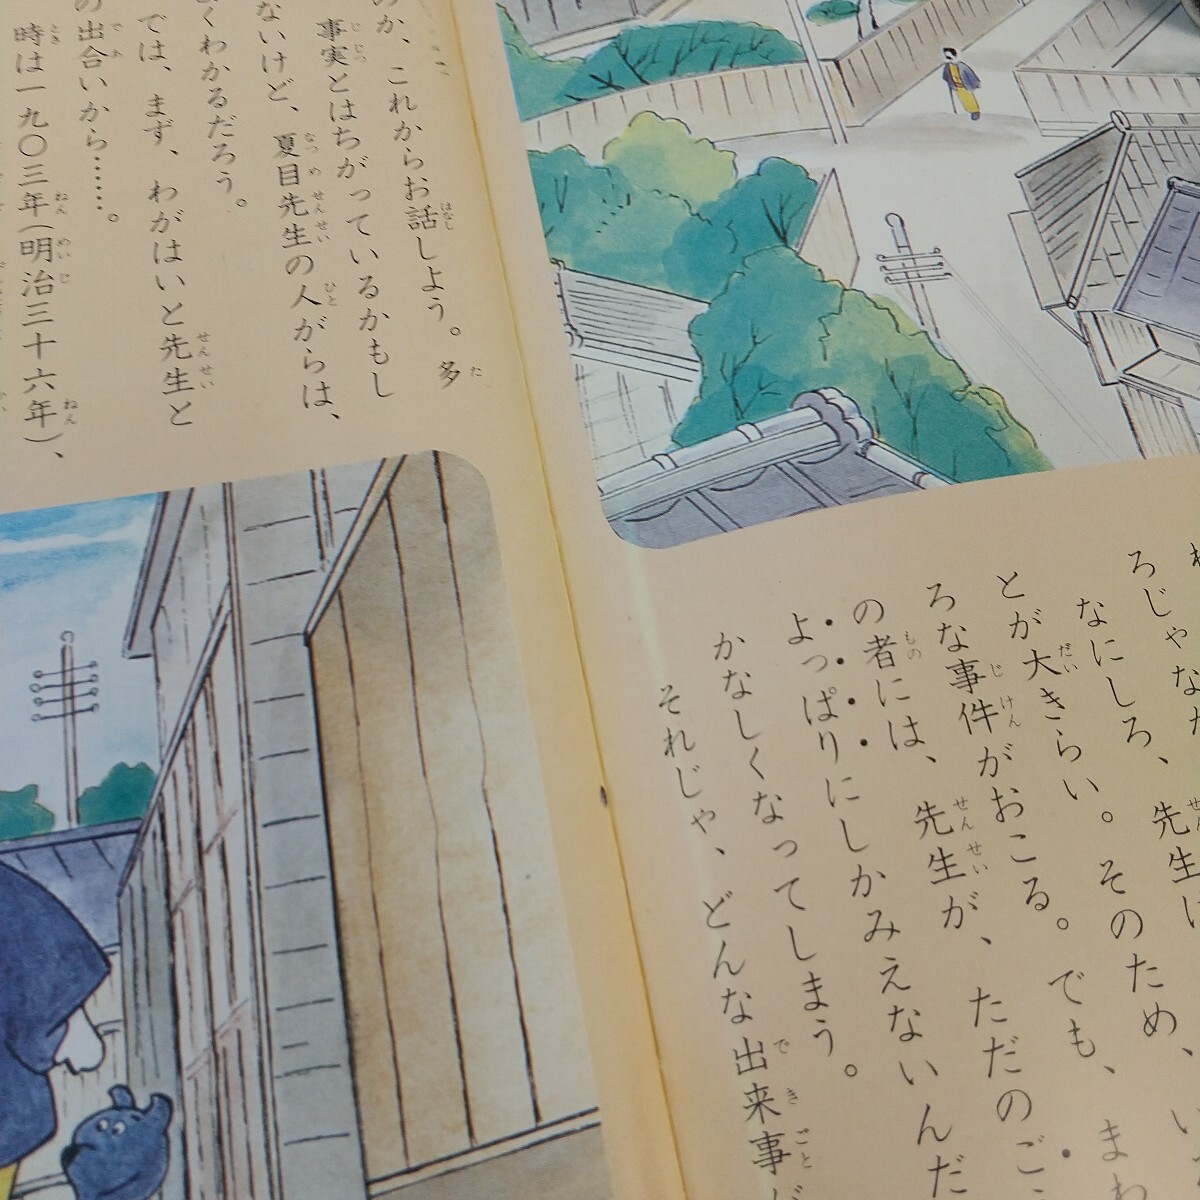 ろじゃな
なにしろ、先生は
とが大きらい。そのため、い
ろな事件がおこる。でも、まわ
の者には、先生が、ただのご
よっぱりにしかみえないんだ
かなしくなってしまう。
それじゃ、どんな出来事が
のか、これからお話しよう。多
事実とはちがっているかもし
ないけど、夏目先生の人がらは、
くわかるだろう。
では、まず、わがはいと先生と
の出合いから……。
時は一九〇三年(明治三十六年)、